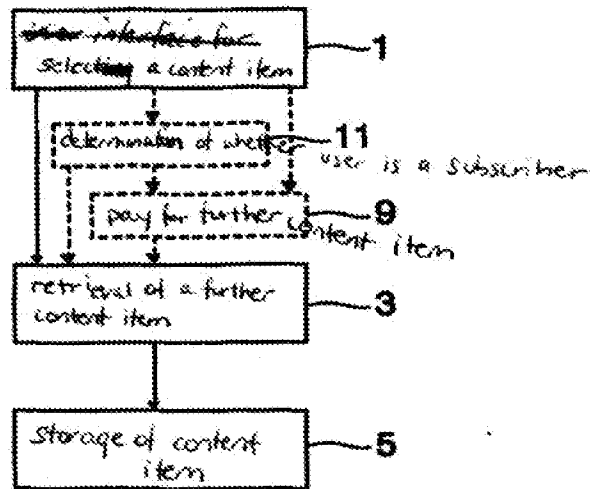 user interface for 1
selecting a content item
determination of whether 11
user is a subscriber
pay for further 9
content item
retrieval of a further
content item 3
storage of content 5
item